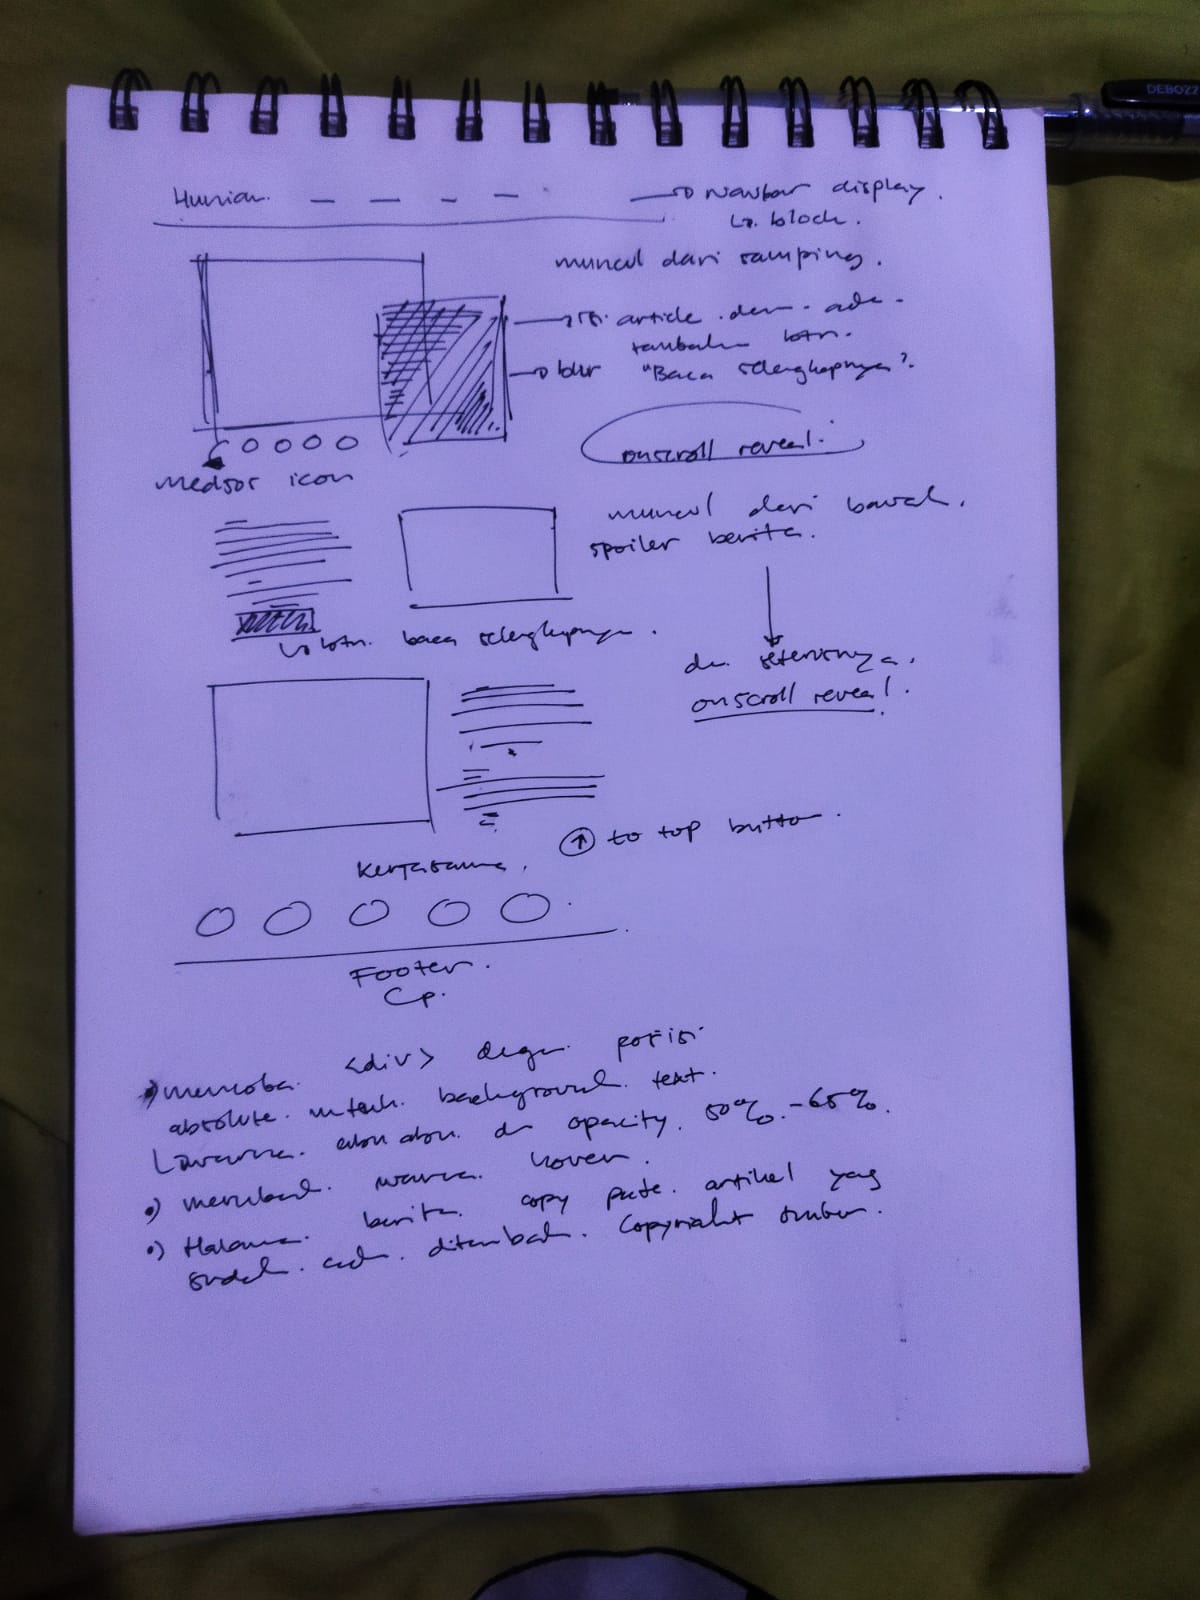 DEBOZZ
Hunian. navbar display.
block.
muncul dari samping.
isi article dan ada
tambah btn.
blur "Baca selengkapnya".
onscroll reveal.
medsos icon
muncul dari bawah.
spoiler berita.
btn. baca selengkapnya.
dan seterusnya.
onscroll reveal!.
↑ to top button.
Kerjasama.
Footer.
Cp.
mencoba <div> dengan posisi
absolute. untuk background text.
warna abu abu. dn opacity. 50% - 65%.
merubah warna hover.
Halaman berita copy paste artikel yang
sudah ada. ditambah. Copyright sumber.